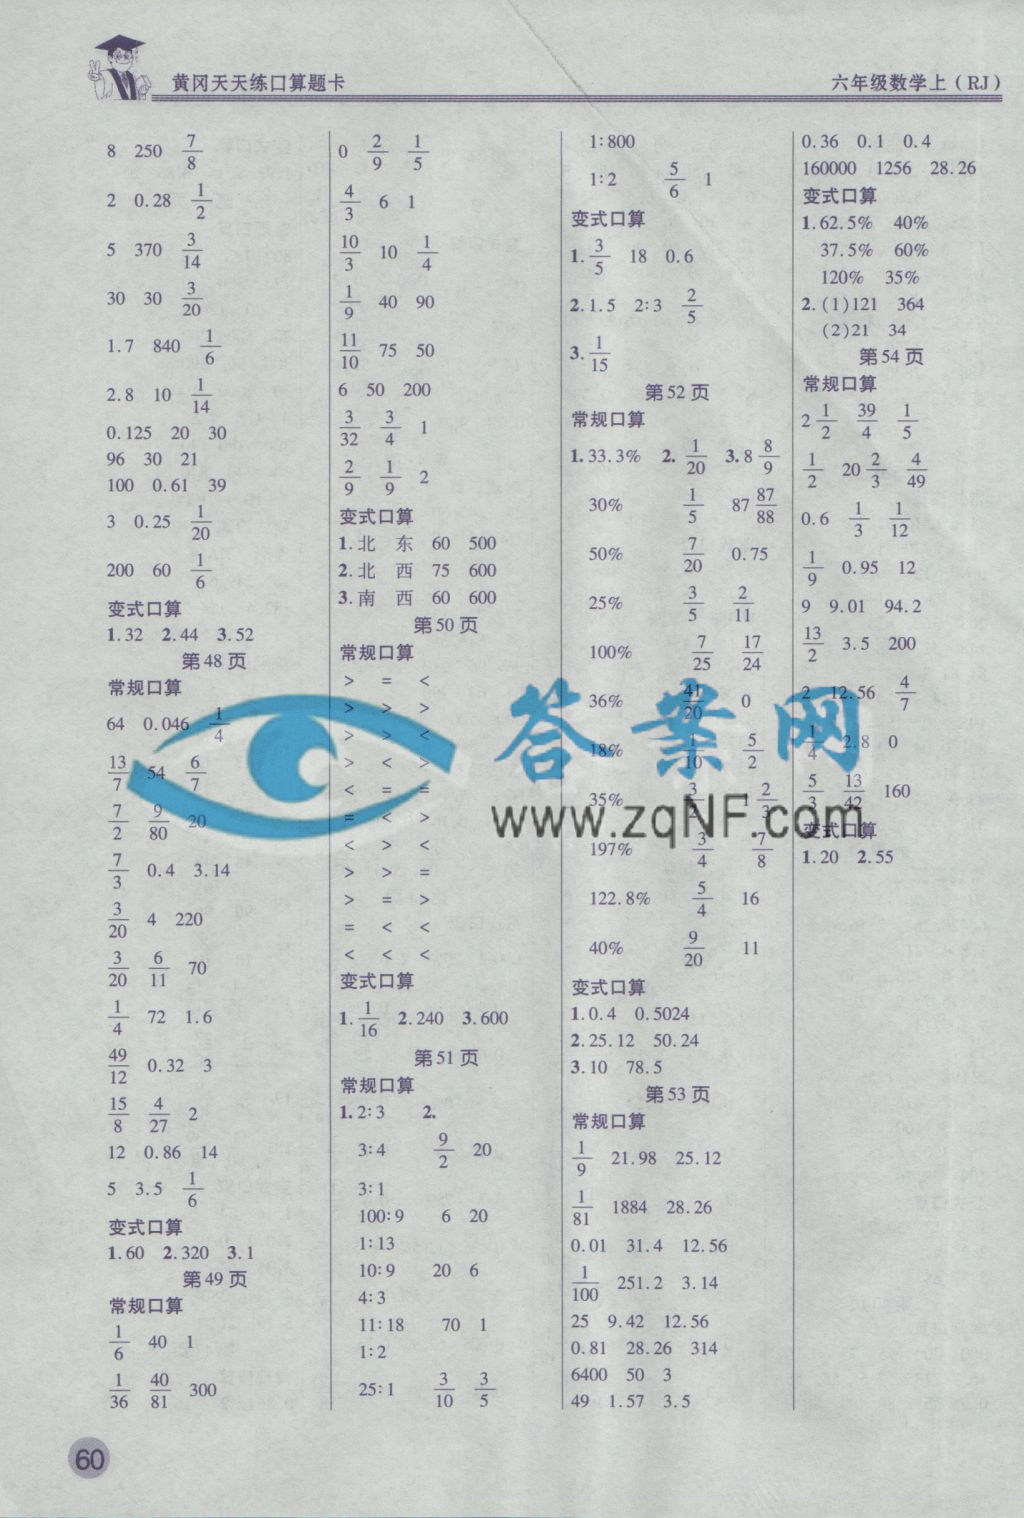 黄冈天天练口算题卡
六年级数学上（RJ）
8 250 7/8
2 0.28 1/2
5 370 3/14
30 30 3/20
1.7 840 1/6
2.8 10 1/14
0.125 20 30
96 30 21
100 0.61 39
3 0.25 1/20
200 60 1/6
变式口算
1.32 2.44 3.52
第48页
常规口算
64 0.046 1/4
13/7 54 6/7
7/2 9/80 20
7/3 0.4 3.14
3/20 4 220
3/20 6/11 70
1/4 72 1.6
49/12 0.32 3
15/8 4/27 2
12 0.86 14
5 3.5 1/6
变式口算
1.60 2.320 3.1
第49页
常规口算
1/6 40 1
1/36 40/81 300
0 2/9 1/5
4/3 6 1
10/3 10 1/4
1/9 40 90
11/10 75 50
6 50 200
3/32 3/4 1
2/9 1/9 2
变式口算
1.北 东 60 500
2.北 西 75 600
3.南 西 60 600
第50页
常规口算
> = <
> > >
> > <
> < >
< = =
= < >
< > <
> > =
> = >
= < <
< < <
变式口算
1.1/16 2.240 3.600
第51页
常规口算
1.2∶3 2.
3∶4 9/2 20
3∶1
100∶9 6 20
1∶13
10∶9 20 6
4∶3
11∶18 70 1
1∶2
25∶1 3/10 3/5
1∶800
1∶2 5/6 1
变式口算
1.3/5 18 0.6
2.1.5 2∶3 2/5
3.1/15
第52页
常规口算
1.33.3% 2.1/20 3.8 8/9
30% 1/5 87 87/88
50% 7/20 0.75
25% 3/5 2/11
100% 7/25 17/24
36% 41/20 0
18% 1/10 5/2
35% 3/2 1 2/3
197% 3/4 7/8
122.8% 5/4 16
40% 9/20 11
变式口算
1.0.4 0.5024
2.25.12 50.24
3.10 78.5
第53页
常规口算
1/9 21.98 25.12
1/81 1884 28.26
0.01 31.4 12.56
1/100 251.2 3.14
25 9.42 12.56
0.81 28.26 314
6400 50 3
49 1.57 3.5
0.36 0.1 0.4
160000 1256 28.26
变式口算
1.62.5% 40%
37.5% 60%
120% 35%
2.(1)121 364
(2)21 34
第54页
常规口算
2 1/2 39/4 1/5
1/2 20 2/3 4/49
0.6 1/3 1/12
1/9 0.95 12
9 9.01 94.2
13/2 3.5 200
2 12.56 4/7
1/4 2.8 0
5/3 13/42 160
变式口算
1.20 2.55
答案网
www.zqNF.com
60